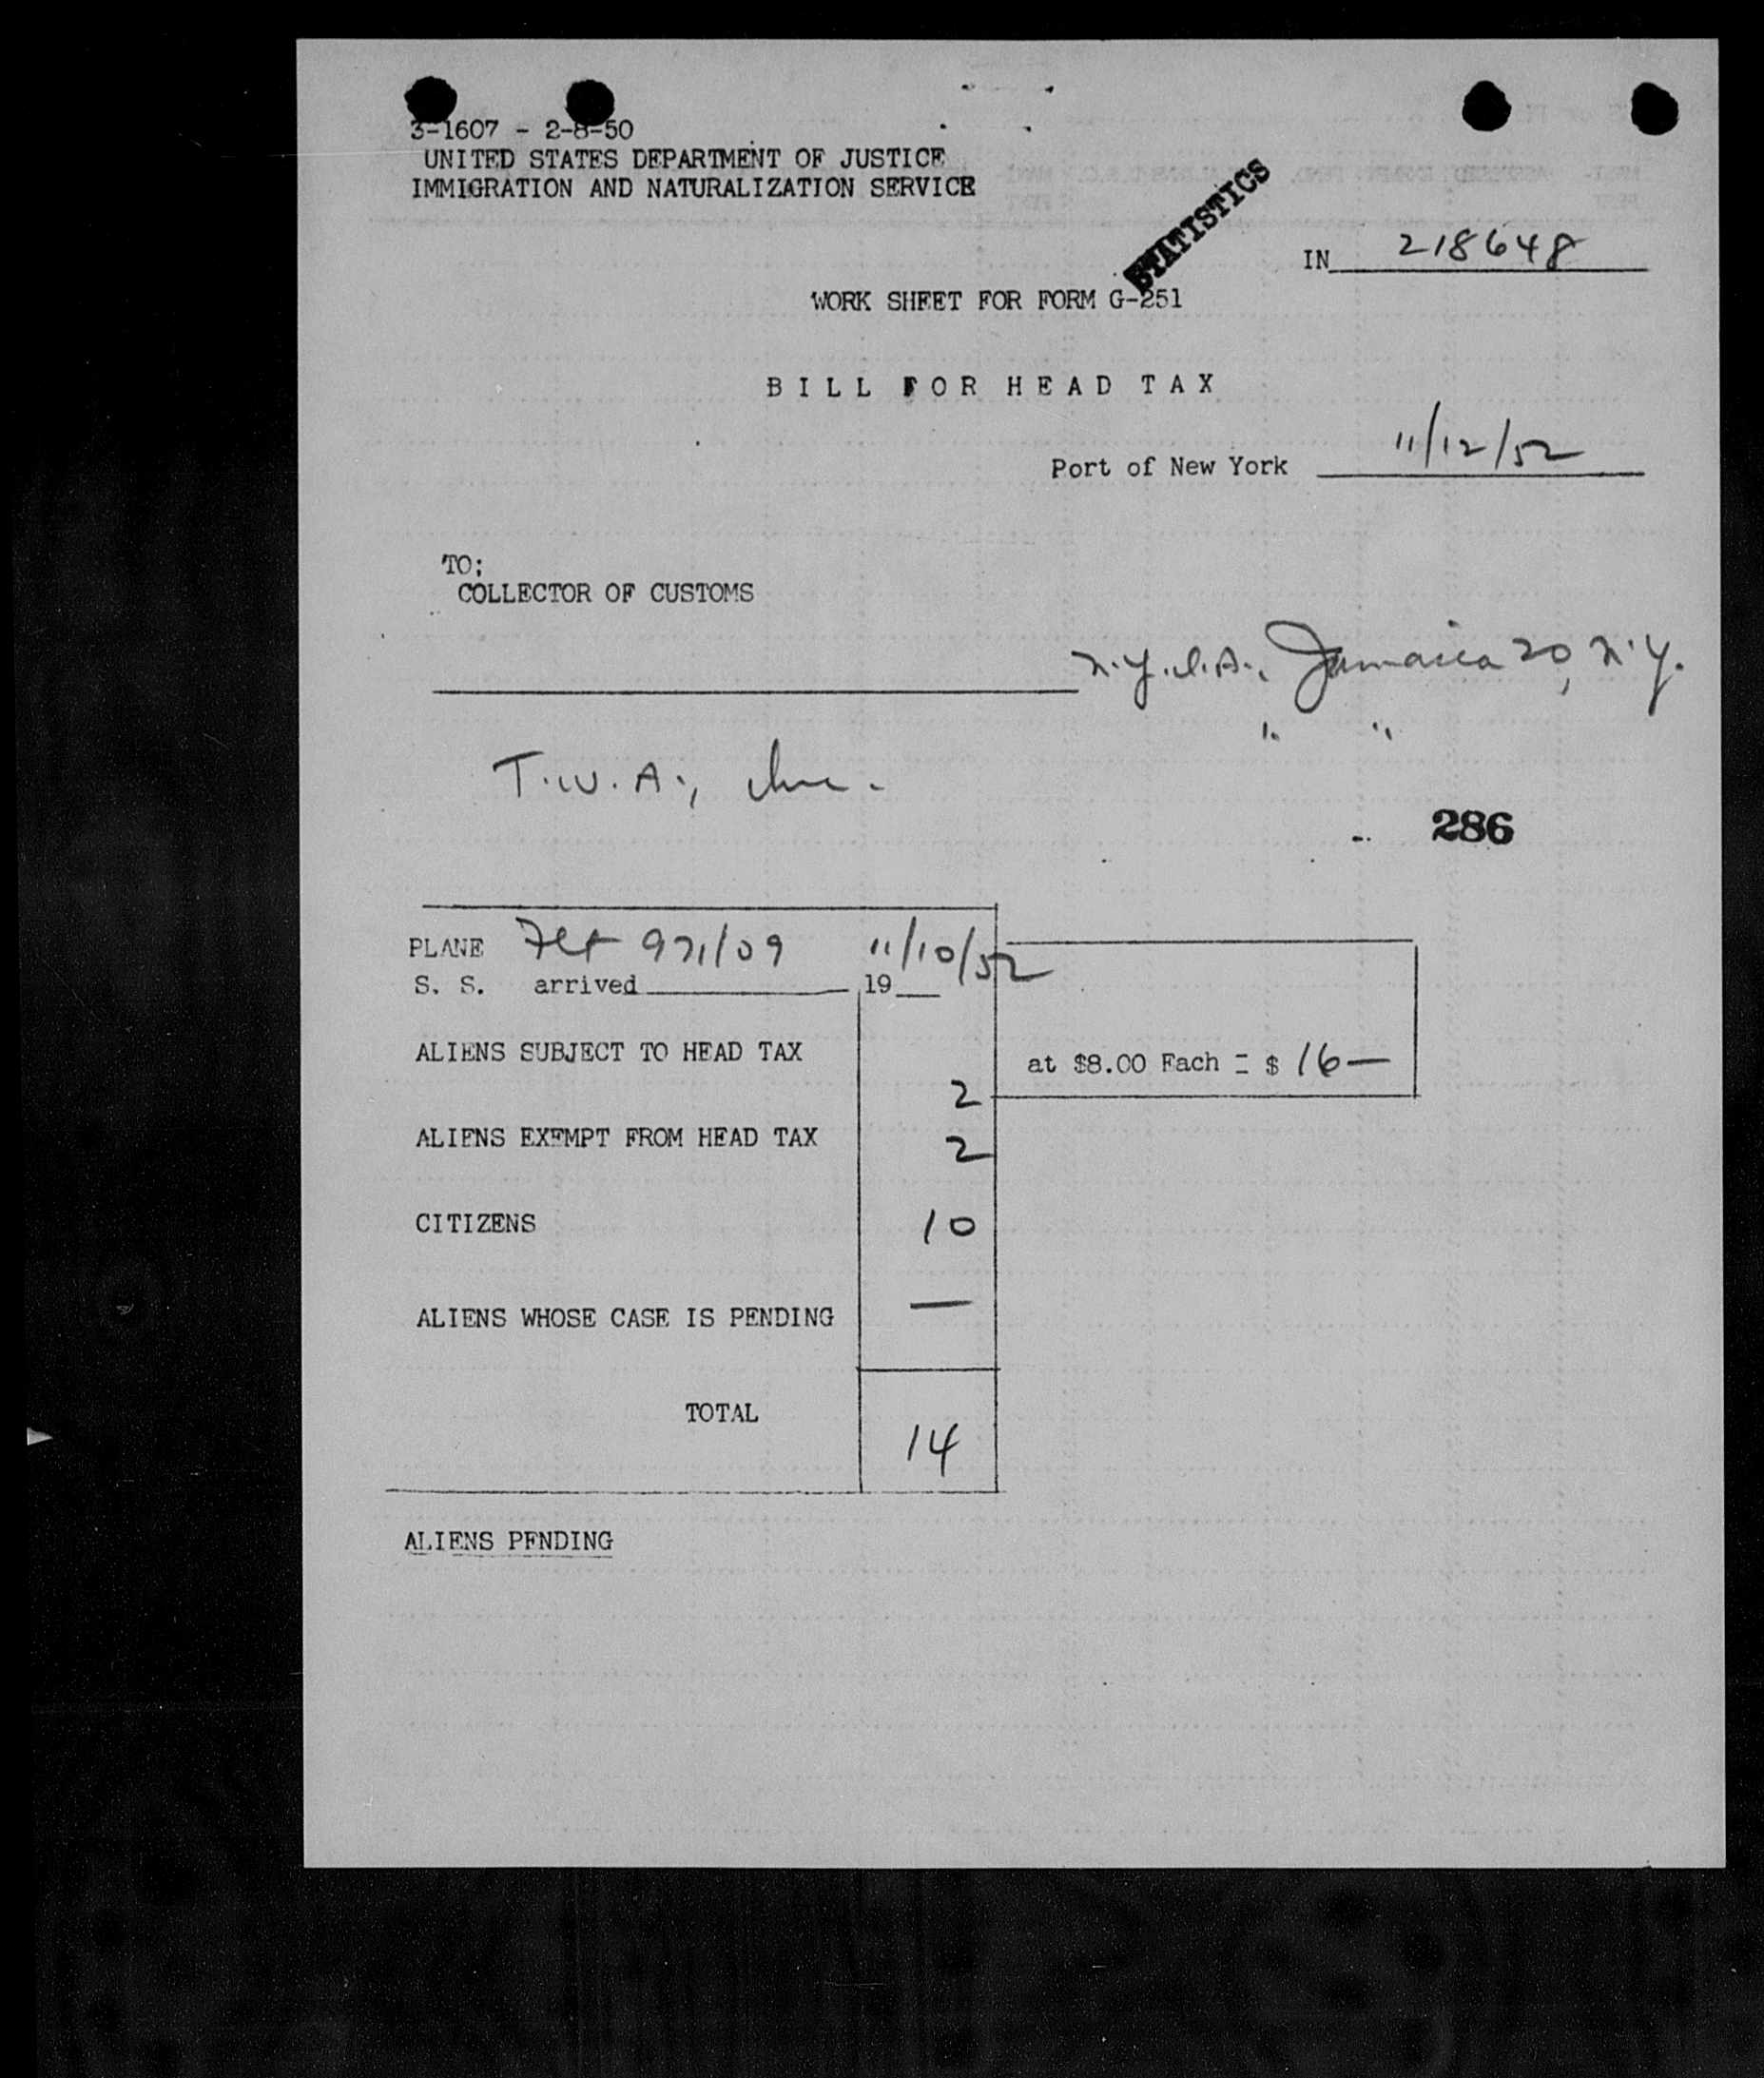 3-1607 - 2-8-50
UNITED STATES DEPARTMENT OF JUSTICE
IMMIGRATION AND NATURALIZATION SERVICE
STATISTICS
IN 218648
WORK SHEET FOR FORM G-251
BILL FOR HEAD TAX
Port of New York 11/12/52
TO;
COLLECTOR OF CUSTOMS
N.Y.I.A., Jamaica 20, N.Y.
" "
T.W.A., Inc.
286
PLANE Flt 971/09 11/10/52
S. S. arrived 19
ALIENS SUBJECT TO HEAD TAX
2
at $8.00 Each = $ 16—
ALIENS EXEMPT FROM HEAD TAX
2
CITIZENS 10
ALIENS WHOSE CASE IS PENDING —
TOTAL
14
ALIENS PENDING